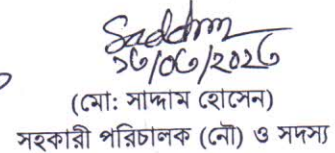 Saddam
১৬/০৬/২০২৬
(মো: সাদ্দাম হোসেন)
সহকারী পরিচালক (নৌ) ও সদস্য